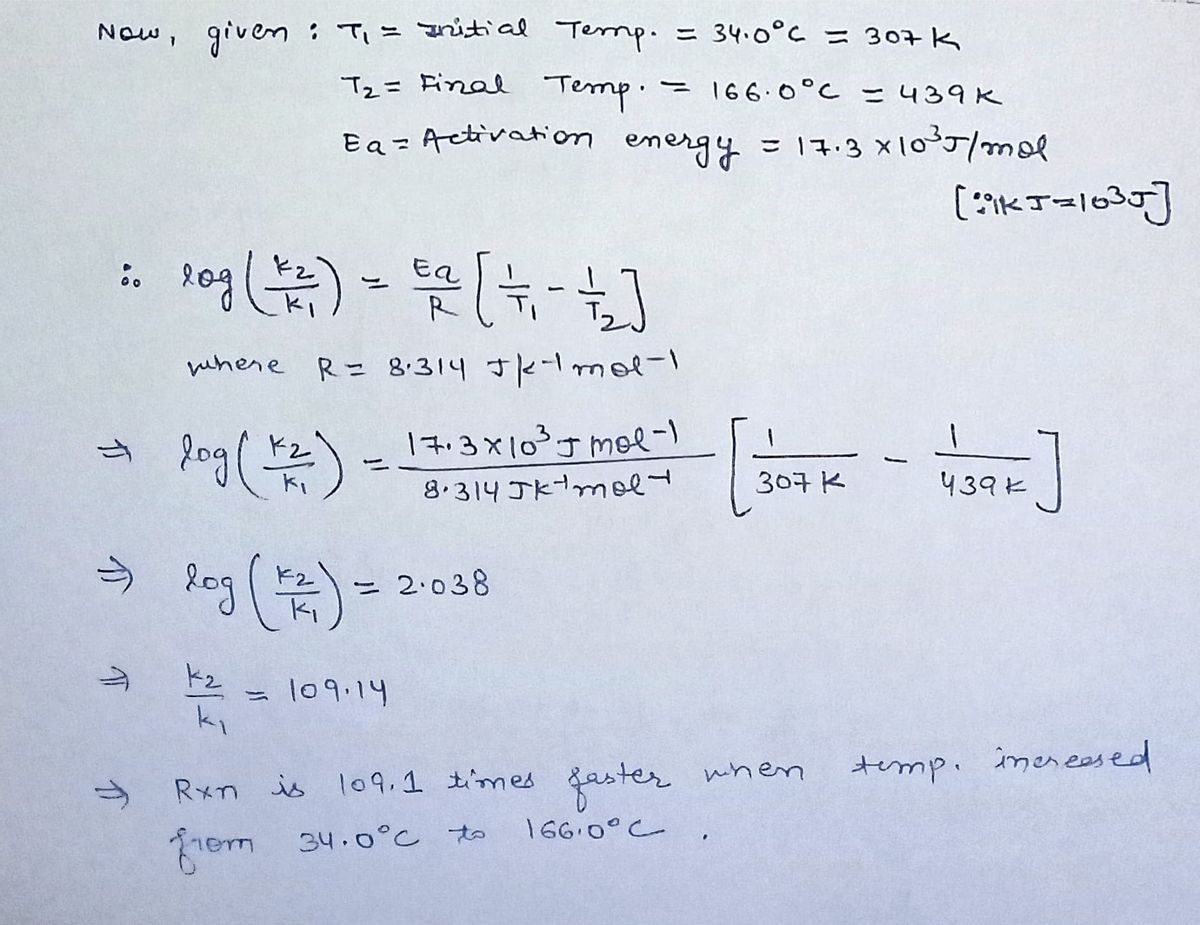 Now, given : T₁ = Initial Temp. = 34.0°C = 307 K
T₂ = Final Temp. = 166.0°C = 439 K
Ea = Activation energy = 17.3 × 10³ J/mol
[∵ 1KJ = 10³ J]
∴ log(k₂/k₁) = Ea/R [1/T₁ - 1/T₂]
where R = 8.314 JK-1 mol-1
⇒ log(k₂/k₁) = 17.3 × 10³ J mol-1 / 8.314 JK-1 mol-1 [1/307 K - 1/439 K]
⇒ log(k₂/k₁) = 2.038
⇒ k₂/k₁ = 109.14
⇒ Rxn is 109.1 times faster when temp. increased
from 34.0°C to 166.0°C .